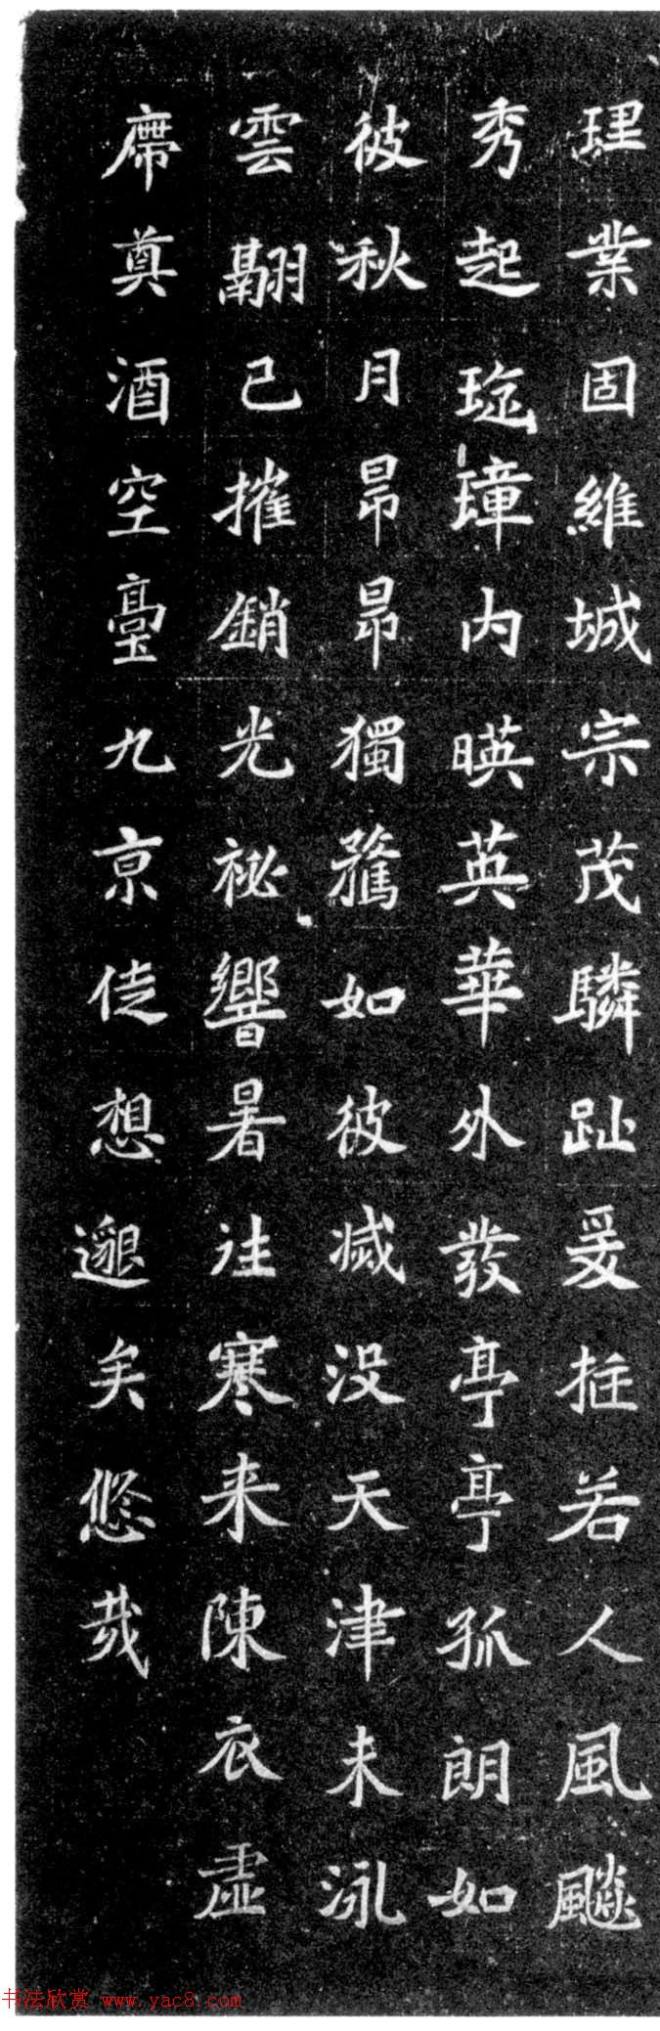 理業固維城宗茂驎趾爰挺若人風飈
秀起琁璋内暎英華外發亭亭孤朗如
彼秋月昂昂獨騖如彼滅没天津未泳
雲翮已摧銷光祕響暑往寒来陳衣虛
席奠酒空臺九亰徒想邈矣悠哉
书法欣赏 www.yac8.com